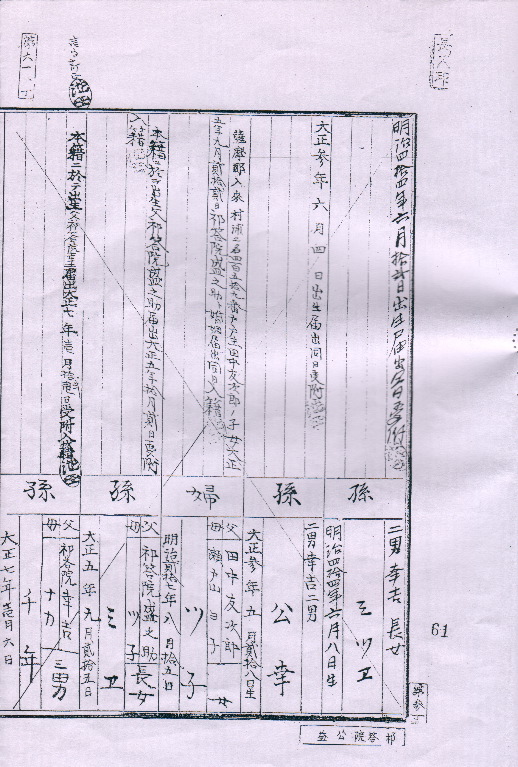 明治四拾四年六月拾壱日出生届出仝日受附
二男幸吉長女
孫
ミツヱ
明治四拾四年六月八日生
大正参年六月四日出生届出同日受附
二男幸吉二男
孫
公幸
大正参年五月貳拾八日生
薩摩郡入来村浦之名四百五拾九番戸戸主田中友次郎子女大正
五年九月貳拾貳日祁答院盛之助ト婚姻届出同日入籍
父 田中友次郎
母 瀬戸山ヨ子
女
婦
ツ子
明治貳拾七年八月拾五日
本籍ニ於テ出生父祁答院盛之助届出大正五年拾月貳日受附
入籍
父 祁答院盛之助
母 ツ子
長女
孫
ミヱ
大正五年九月貳拾五日
本籍ニ於テ出生父祁答院幸吉届出大正七年壱月拾壱日受附入籍
父 祁答院幸吉
母 ナカ
三男
孫
千年
大正七年壱月六日
61
祁答院公盛